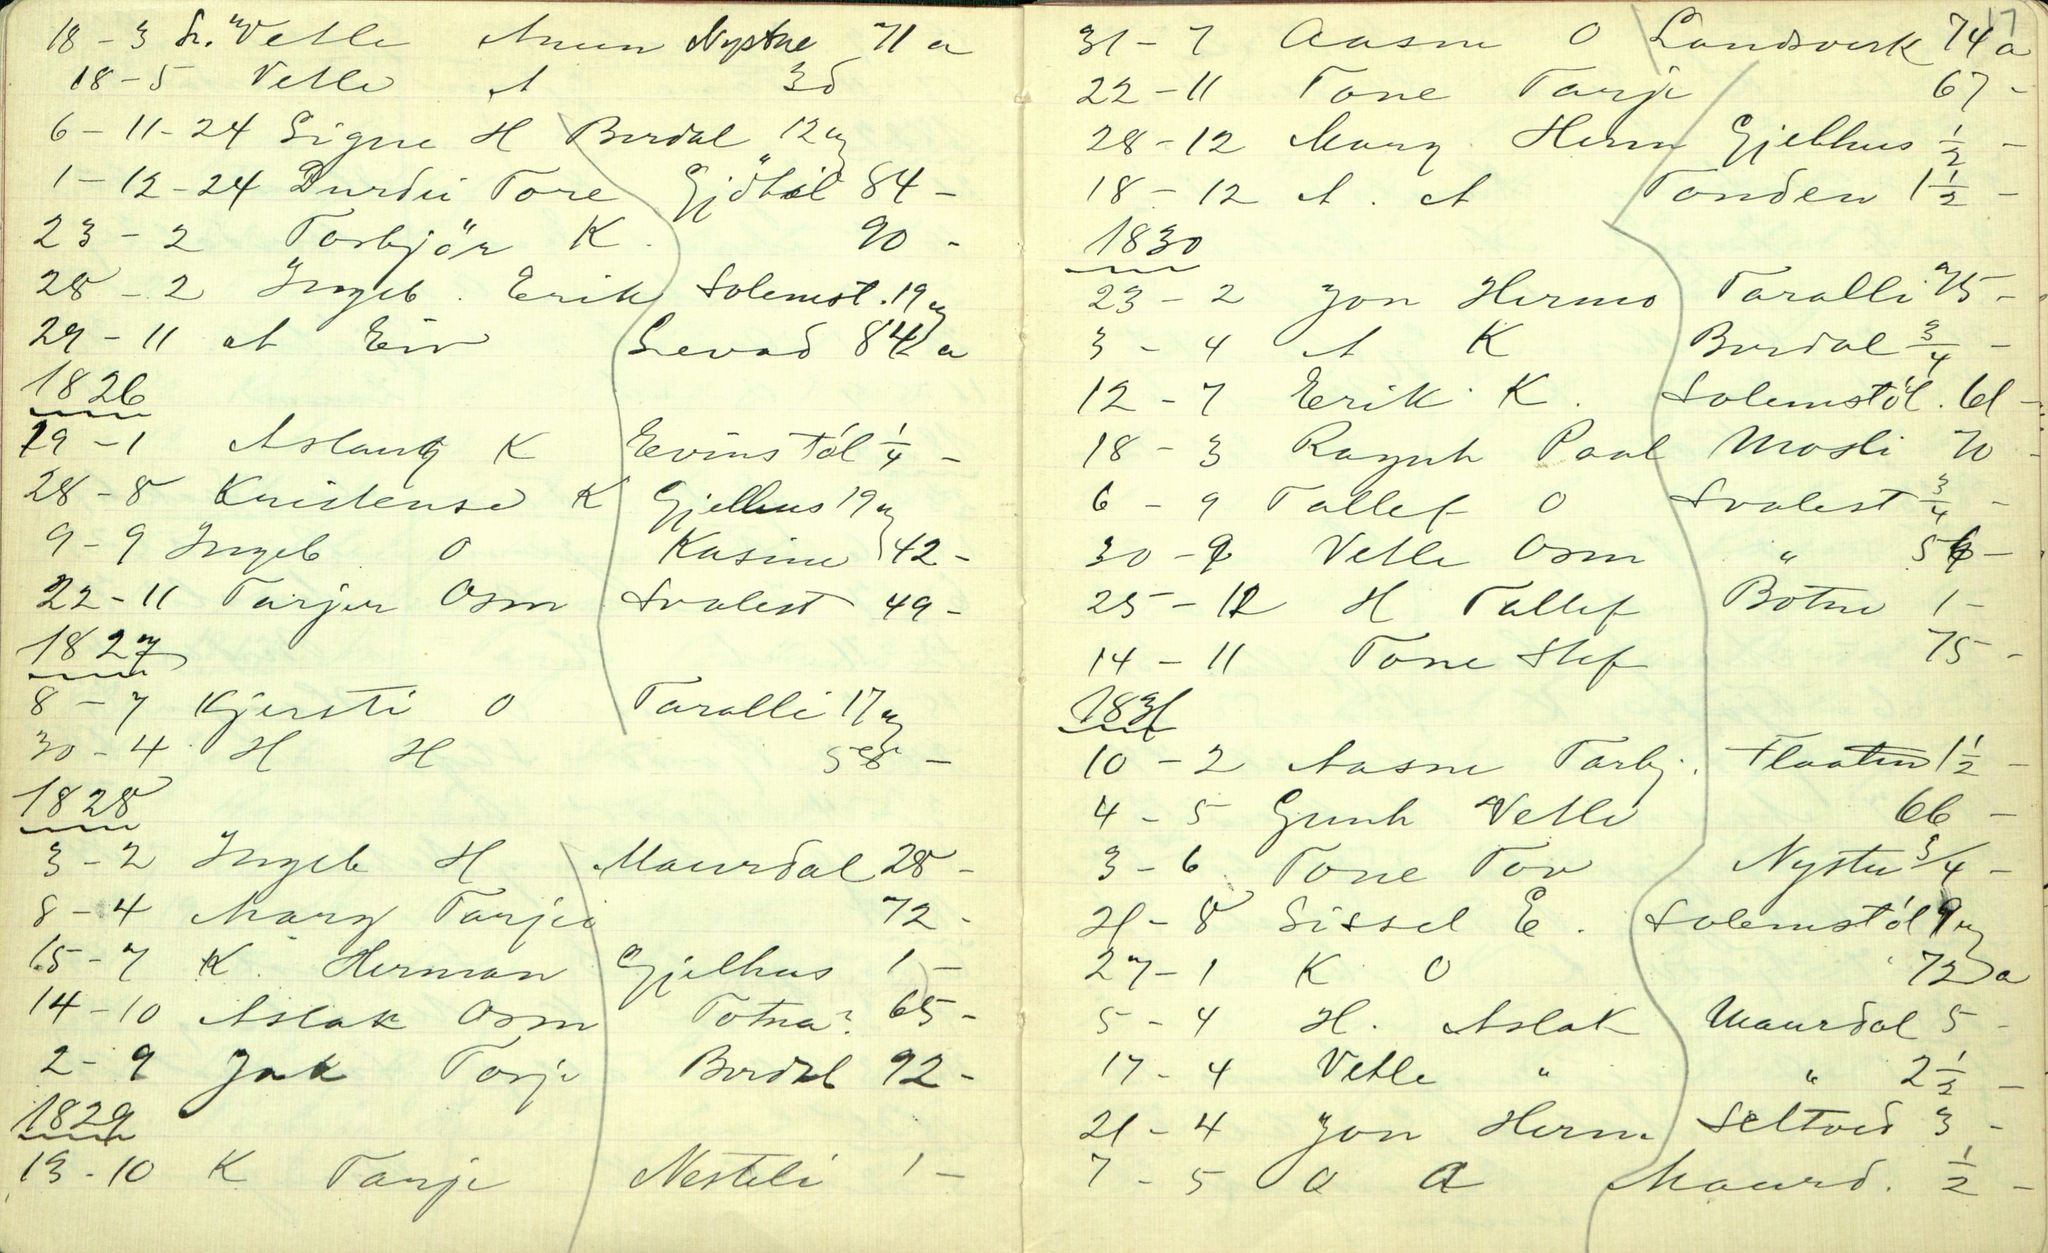 18 - 3 Sr. Vetle Anun Nystue 71 a
18 - 5 Vetle A 3d
6 - 11 - 24 Signe H Berdal 12 u
1 - 12 - 24 Durdei Tore Gjötil 84 -
23 - 2 Torbjör K. 90 -
28 - 2 Ingeb. Erik Solemst. 19 u
29 - 11 A Eiv Levad 84 a
1826
29 - 1 Aslaug K Eevinstöl 1/4 -
28 - 8 Kristense K Gjelhus 19 u
9 - 9 Ingeb O Kasine 42 -
22 - 11 Tarjer Osm Svalest 49 -
1827
8 - 7 Kjersti O Taralli 17 u
30 - 4 H H 58 -
1828
3 - 2 Ingeb H Maurdal 28 -
8 - 4 Marg Tarjei 72 -
15 - 7 K. Herman Gjelhus 1 -
14 - 10 Aslak Osm Totna? 65 -
2 - 9 Jak Torje Berdal 92 -
1829
13 - 10 K Tarje Nesteli 1 -
17
31 - 7 Aasne O Landsverk 74 a
22 - 11 Tone Tarje 67 -
28 - 12 Marg Herm Gjelhus 1/2 -
18 - 12 A. A Tonden 1 1/2 -
1830
23 - 2 Jon Hermo Taralli 75 -
3 - 4 A K Berdal 3/4 -
12 - 7 Erik K. Solemstöl. 61 -
18 - 3 Ragnh Paal Mosli 70 -
6 - 9 Tallef O Svalest 3/4 -
30 - 9 Vetle Osm " 56 -
25 - 12 H Tallef Botne 1 -
14 - 11 Tone Stef 75 -
1831
10 - 2 Aasne Tarbj. Flaaten 1 1/2 -
4 - 5 Gunh Vetle 66 -
3 - 6 Tone Tov Nystu 3/4 -
21 - 8 Sissel E. Solemstöl 9 u
27 - 1 K O 72 a
5 - 4 H. Aslak Maurdal 5 -
17 - 4 Vetle " " 2 1/2 -
21 - 4 Jon Herm Seltved 3 -
7 - 5 O A Maurd. 1/2 -